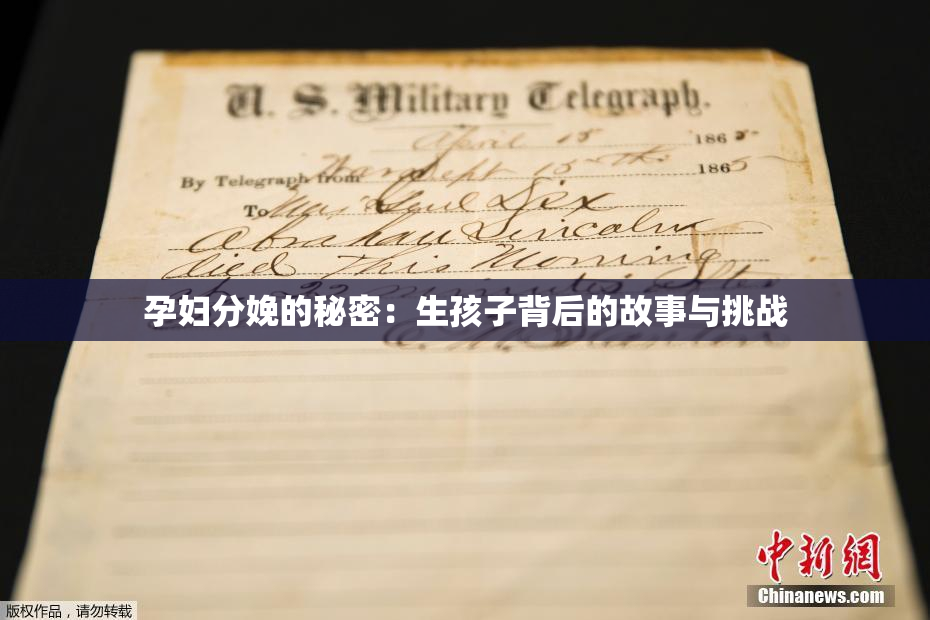 U. S. Military Telegraph.
April 15 1865
By Telegraph from War Dept 15th 1865
To Maj Genl Dix
Abraham Lincoln
died This Morning
22 minutes after
孕妇分娩的秘密：生孩子背后的故事与挑战
E. M. Stanton
中新网
Chinanews.com
版权作品，请勿转载